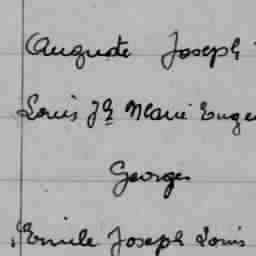 Auguste Joseph
Louis Jh Marie Euge
Georges
Emile Joseph Louis